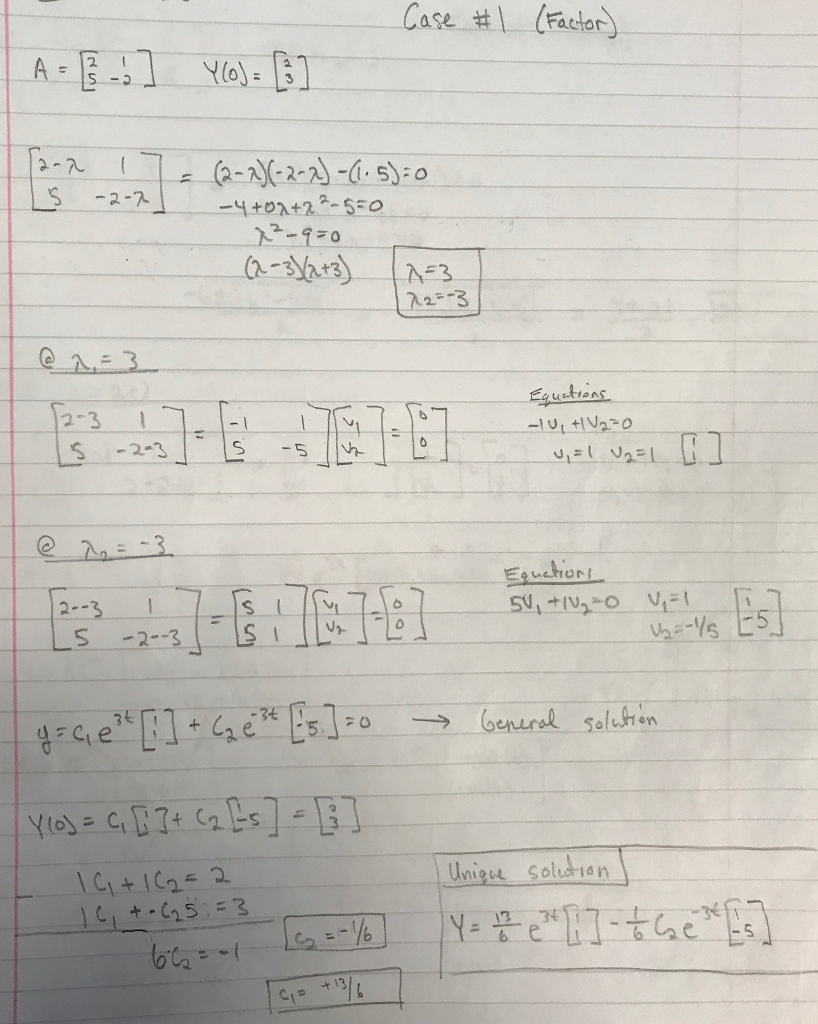 Case #1 (Factor)
A = [2 1; 5 -2] Y(0) = [2; 3]
[2-λ 1; 5 -2-λ] = (2-λ)(-2-λ) -(1·5)=0
-4+0λ+λ²-5=0
λ²-9=0
(λ-3)(λ+3)
λ=3
λ2=-3
@ λ₁ = 3
[2-3 1; 5 -2-3] = [-1 1; 5 -5][v₁; v₂] = [0; 0]
Equations
-1v₁ +1v₂=0
v₁=1 v₂=1 [1; 1]
@ λ₂ = -3
[2--3 1; 5 -2--3] = [5 1; 5 1][v₁; v₂] = [0; 0]
Equations
5v₁ +1v₂=0 v₁=1
v₂=-1/5 [1; -5]
y = c₁e^3t [1; 1] + c₂e^-3t [1; -5] = 0 → General solution
Y(0) = c₁[1; 1] + c₂[1; -5] = [2; 3]
1c₁ + 1c₂ = 2
- 1c₁ + -c₂5 = 3
6c₂ = -1
c₂ = -1/6
c₁ = +13/6
Unique solution
Y = 13/6 e^3t [1; 1] - 1/6 c₂e^-3t [1; -5]